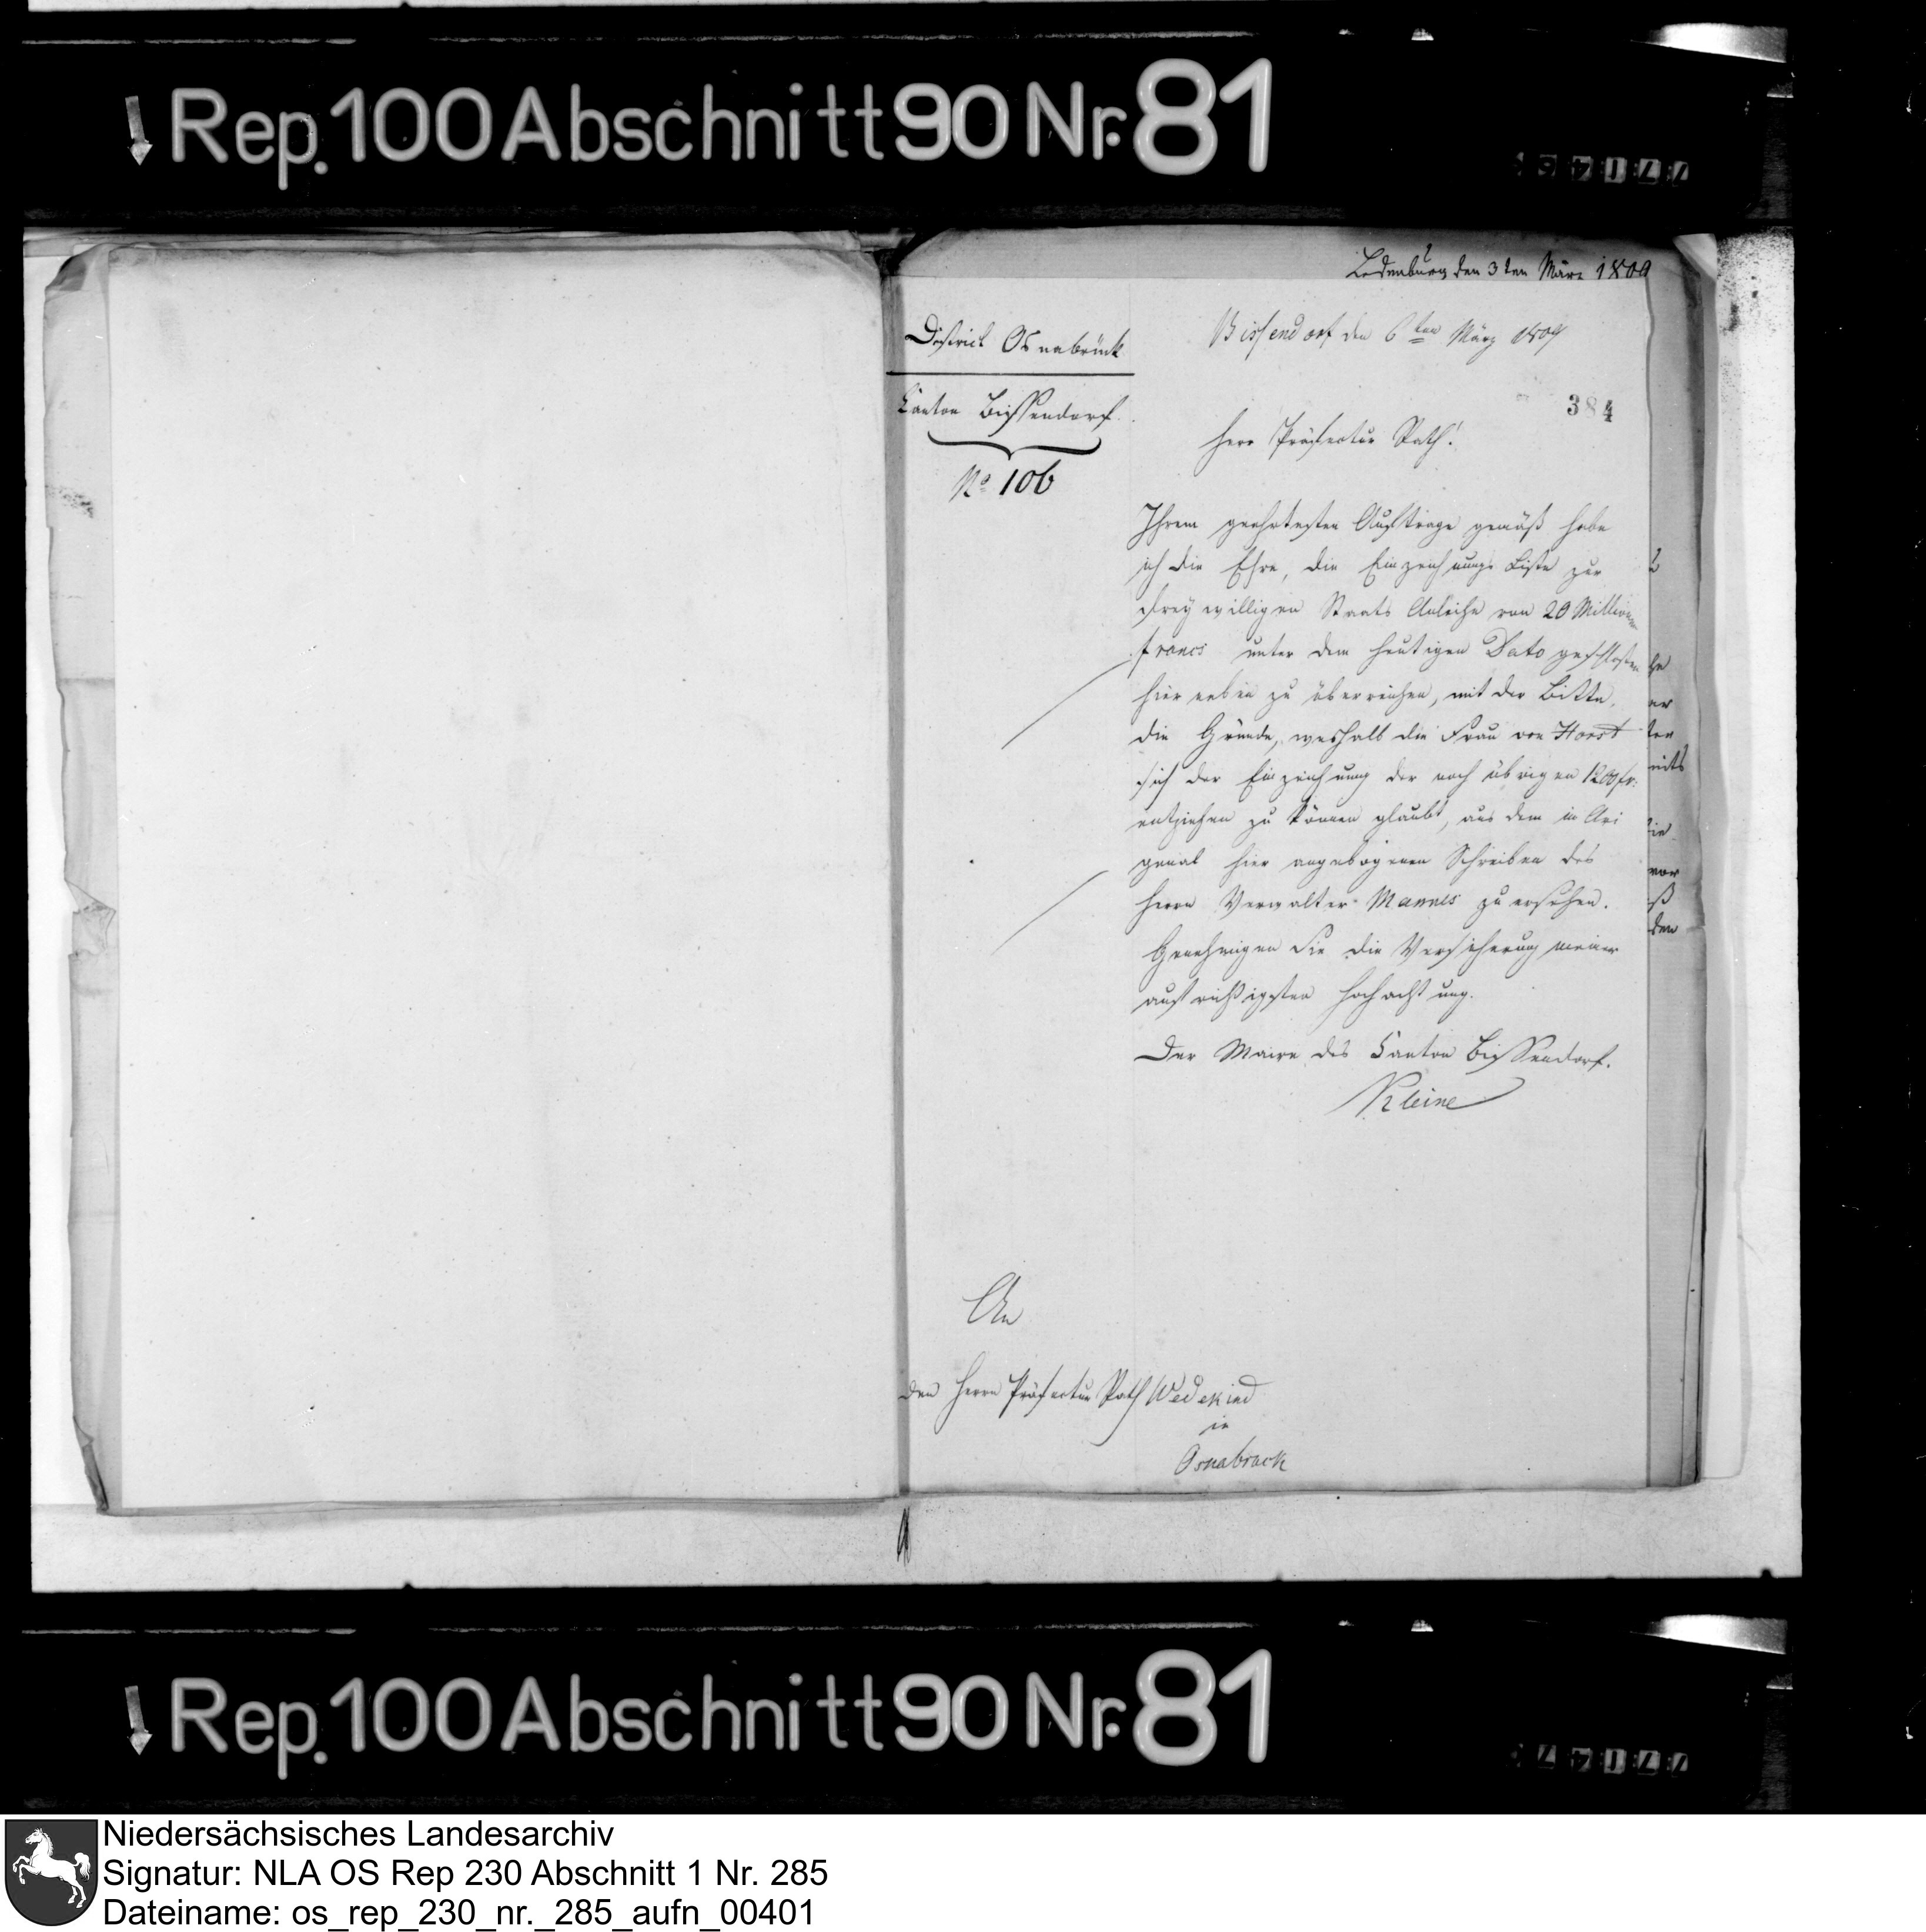 Rep. 100 Abschnitt 90 Nr. 81
Ledenburg den 3ten März 1809
District Osnabrück
Bissendorf den 6ten März 1809
Canton Bissendorf.
384
No 106
Herr Präfectur Rath!
Ihrem geehrtesten Auftrage gemäß habe
ich die Ehre, die Einzeichnungs Liste zur
freywilligen Staats Anleihe von 20 Millionen
francs unter dem heutigen Dato geschlossen
hierneben zu überreichen, mit der Bitte,
die Gründe, weshalb die Frau von Horst
sich der Einzeichnung der noch übrigen 1200 fr.
entziehen zu können glaubt, aus dem in Ori
ginal hier angebogenen Schreiben des
Herrn Verwalter Mannes zu ersehen.
Genehmigen Sie die Versicherung meiner
aufrichtigsten Hochachtung.
Der Maire des Canton Bissendorf.
Kleine
An
den Herrn Präfectur Rath Wedekind
in
Osnabrück
Rep. 100 Abschnitt 90 Nr. 81
Niedersächsisches Landesarchiv
Signatur: NLA OS Rep 230 Abschnitt 1 Nr. 285
Dateiname: os_rep_230_nr._285_aufn_00401